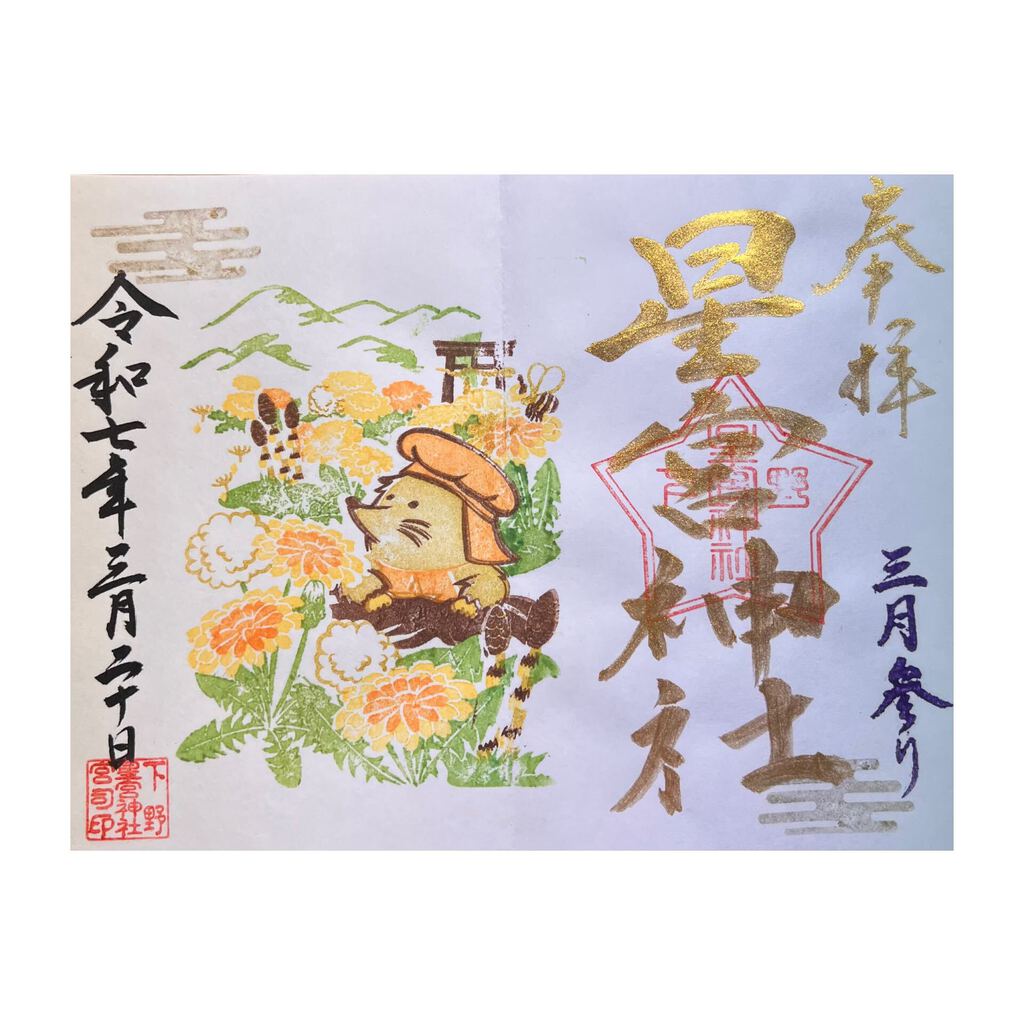 奉拝
三月参り
星宮神社
下野
星宮神社
令和七年三月二十日
下野
星宮神社
宮司印